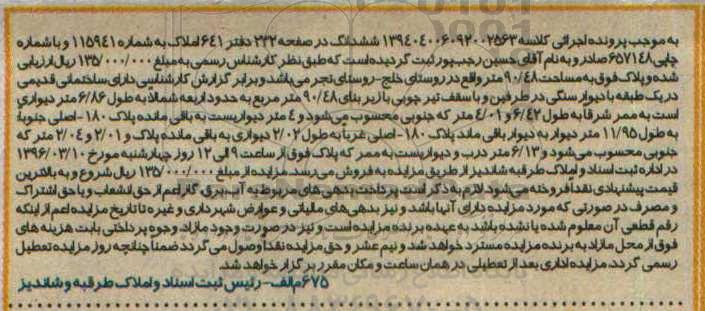 به موجب پرونده اجرائی کلاسه ۱۳۹۴۰۴۰۰۶۰۹۲۰۰۲۵۶۳ ششدانگ در صفحه ۲۳۲ دفتر ۶۴۱ املاک به شماره ۱۱۵۹۴۱ و با شماره
چاپی ۶۵۷۱۴۸ صادر و به نام آقای حسین رجب پور ثبت گردیده است که طبق نظر کارشناس رسمی به مبلغ ۱۳۵/۰۰۰/۰۰۰ ریال ارزیابی
شده و پلاک فوق به مساحت ۹۰/۴۸ متر واقع در روستای خلج- روستای نجر می باشد و برابر گزارش کارشناسی دارای ساختمانی قدیمی
در یک طبقه با دیوار سنگی در طرفین و با سقف تیر چوبی با زیر بنای ۹۰/۴۸ متر مربع به حدود اربعه شمالا به طول ۶/۸۶ متر دیواری
است به ممر شرقا به طول ۶/۴۲ و ۴/۰۱ متر که جنوبی محسوب می شود و ۴ متر دیواریست به باقی مانده پلاک ۱۸۰- اصلی جنوبا:
به طول ۱۱/۹۵ متر دیوار به دیوار باقی ماند پلاک ۱۸۰- اصلی غربا به طول ۲/۰۲ دیواری به باقی مانده پلاک و ۲/۰۱ و ۲/۰۴ متر که
جنوبی محسوب می شود و ۶/۱۳ متر درب و دیواریست به ممر که پلاک فوق از ساعت ۹ الی ۱۲ روز چهارشنبه مورخ ۱۳۹۶/۰۳/۱۰
در اداره ثبت اسناد و املاک طرقبه شاندیز از طریق مزایده به فروش می رسد مزایده از مبلغ ۱۳۵/۰۰۰/۰۰۰ ریال شروع و به بالاترین
قیمت پیشنهادی نقدا فروخته می شود لازم به ذکر است پرداخت بدهی های مربوط به آب، برق، گاز اعم از حق انشعاب و یا حق اشتراک
و مصرف در صورتی که مورد مزایده دارای آنها باشد و نیز بدهی های مالیاتی و عوارض شهرداری و غیره تا تاریخ مزایده اعم از اینکه
رقم قطعی آن معلوم شده یا نشده باشد به عهده برنده مزایده است و نیز در صورت وجود مازاد وجوه پرداختی بابت هزینه های
فوق از محل مازاد به برنده مزایده مسترد خواهد شد و نیم عشر و حق مزایده نقدا وصول می گردد ضمنا چنانچه روز مزایده تعطیل
رسمی گردد، مزایده اداری بعد از تعطیلی در همان ساعت و مکان مقرر برگزار خواهد شد.
۶۷۵/م الف- رئیس ثبت اسناد و املاک طرقبه و شاندیز